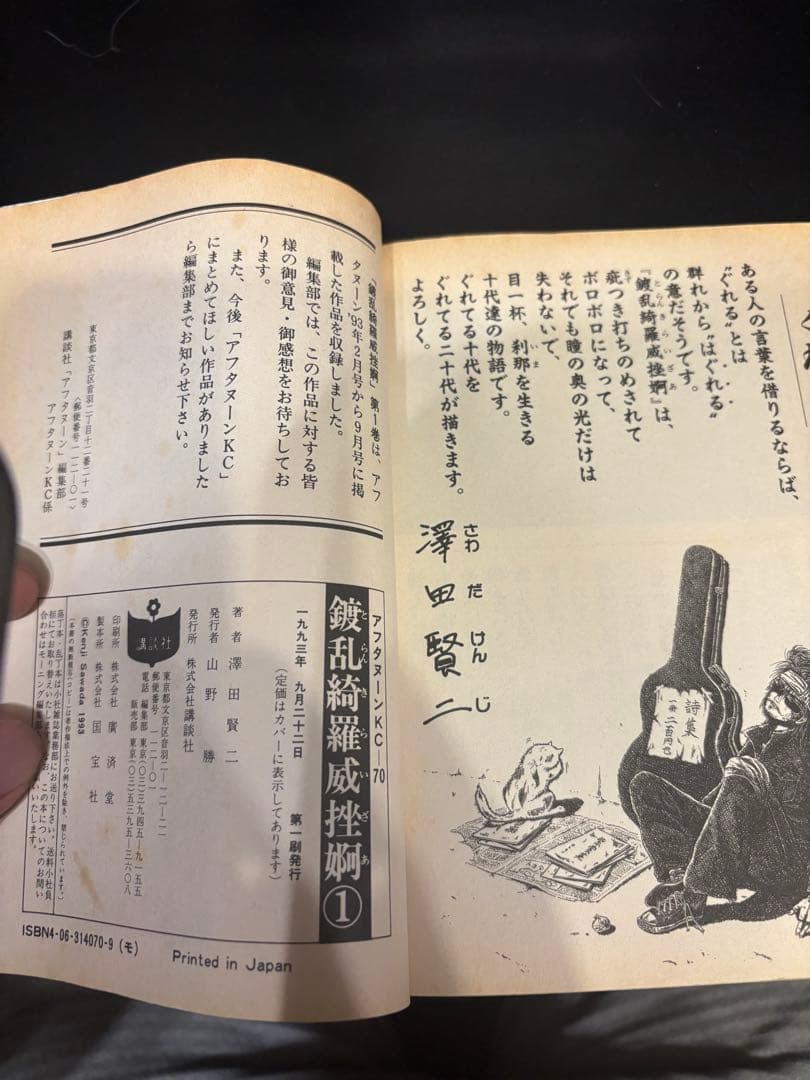 ある人の言葉を借りるならば、
“ぐれる”とは
群れから“はぐれる”
の意だそうです。
『鍍乱綺羅威挫婀』は、
とらんきらいざあ
疵つき打ちのめされて
きず
ボロボロになって、
それでも瞳の奥の光だけは
失わないで、
目一杯、刹那を生きる
いま
十代達の物語です。
ぐれてる十代を
ぐれてる二十代が描きます。
よろしく。
澤田賢二
さわだけんじ
詩集
一冊 二百円也
「鍍乱綺羅威挫婀」第1巻は、アフ
タヌーン'93年2月号から9月号に掲
載した作品を収録しました。
編集部では、この作品に対する皆
様の御意見・御感想をお待ちしてお
ります。
また、今後「アフタヌーンKC」
にまとめてほしい作品がありました
ら編集部までお知らせ下さい。
東京都文京区音羽二丁目十二番二十一号
〈郵便番号一一二-〇一〉
講談社「アフタヌーン」編集部
アフタヌーンKC係
アフタヌーンKC—70
鍍乱綺羅威挫婀①
とらんきらいざあ
一九九三年 九月二十二日 第一刷発行
(定価はカバーに表示してあります)
著者 澤田賢二
発行者 山野 勝
発行所 株式会社講談社
東京都文京区音羽二-一二-二一
郵便番号 一一二-〇一
電話 編集部 東京(〇三)三九四五-九一五五
販売部 東京(〇三)五三九五-三六〇八
講談社
印刷所 株式会社 廣済堂
製本所 株式会社 国宝社
©Kenji Sawada 1993
(本書の無断複写(コピー)は著作権法上での例外を除き、禁じられています。)
落丁本・乱丁本は小社雑誌業務部にお送り下さい。送料小社負
担にてお取り替えいたします。なお、この本についてのお問い
合わせはモーニング編集部
いたします。
ISBN4-06-314070-9 (モ)
Printed in Japan